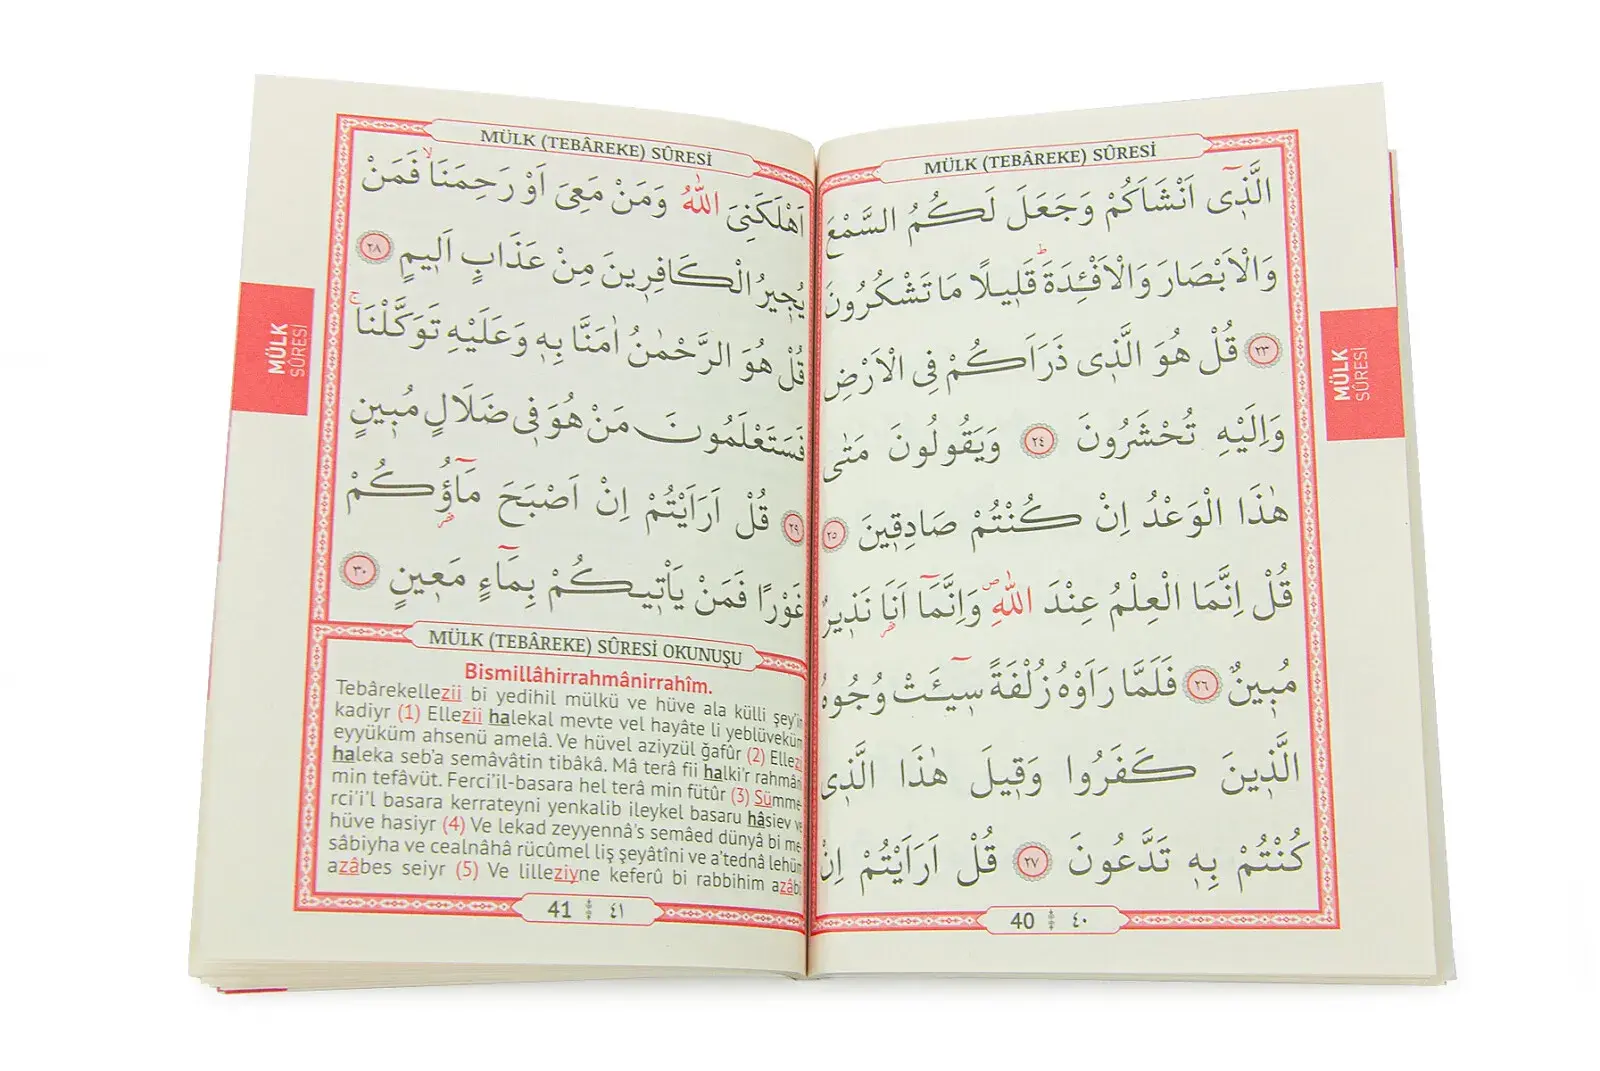 MÜLK (TEBÂREKE) SÛRESİ
الَّذٖٓى اَنْشَاَكُمْ وَجَعَلَ لَكُمُ السَّمْعَ
وَالْاَبْصَارَ وَالْاَفْـِٔدَةَؕ قَلٖيلًا مَا تَشْكُرُونَ
﴿٢٣﴾ قُلْ هُوَ الَّذٖى ذَرَاَكُمْ فِى الْاَرْضِ
وَاِلَيْهِ تُحْشَرُونَ ﴿٢٤﴾ وَيَقُولُونَ مَتٰى
هٰذَا الْوَعْدُ اِنْ كُنْتُمْ صَادِقٖينَ ﴿٢٥﴾
قُلْ اِنَّمَا الْعِلْمُ عِنْدَ اللّٰهِ ص وَاِنَّمَٓا اَنَا۬ نَذٖيرٌ
مُبٖينٌ ﴿٢٦﴾ فَلَمَّا رَاَوْهُ زُلْفَةً سٖٓيـَٔتْ وُجُوهُ
الَّذٖينَ كَفَرُوا وَقٖيلَ هٰذَا الَّذٖى
كُنْتُمْ بِهٖ تَدَّعُونَ ﴿٢٧﴾ قُلْ اَرَاَيْتُمْ اِنْ
40 ٤٠
MÜLK
SÛRESİ
MÜLK (TEBÂREKE) SÛRESİ
اَهْلَكَنِىَ اللّٰهُ وَمَنْ مَعِىَ اَوْ رَحِمَنَاۙ فَمَنْ
يُجٖيرُ الْكَافِرٖينَ مِنْ عَذَابٍ اَلٖيمٍ ﴿٢٨﴾
قُلْ هُوَ الرَّحْمٰنُ اٰمَنَّا بِهٖ وَعَلَيْهِ تَوَكَّلْنَاۚ
فَسَتَعْلَمُونَ مَنْ هُوَ فٖى ضَلَالٍ مُبٖينٍ
﴿٢٩﴾ قُلْ اَرَاَيْتُمْ اِنْ اَصْبَحَ مَٓاؤُ۬كُمْ
غَوْرًا فَمَنْ يَاْتٖيكُمْ بِمَٓاءٍ مَعٖينٍ ﴿٣٠﴾
MÜLK (TEBÂREKE) SÛRESİ OKUNUŞU
Bismillâhirrahmânirrahîm.
Tebârekellezii bi yedihil mülkü ve hüve ala külli şey'in
kadiyr (1) Ellezii halekal mevte vel hayâte li yeblüveküm
eyyüküm ahsenü amelâ. Ve hüvel aziyzül ğafûr (2) Ellezi
haleka seb'a semâvâtin tibâkâ. Mâ terâ fii halki'r rahmân
min tefâvüt. Ferci'il-basara hel terâ min fütûr (3) Sümme
rci'i'l basara kerrateyni yenkalib ileykel basaru hâsiev ve
hüve hasiyr (4) Ve lekad zeyyennâ's semâed dünyâ bi me
sâbiyha ve cealnâhâ rücûmel liş şeyâtîni ve a'tednâ lehüm
azâbes seiyr (5) Ve lilleziyne keferû bi rabbihim azâbi
41 ٤١
MÜLK
SÛRESİ